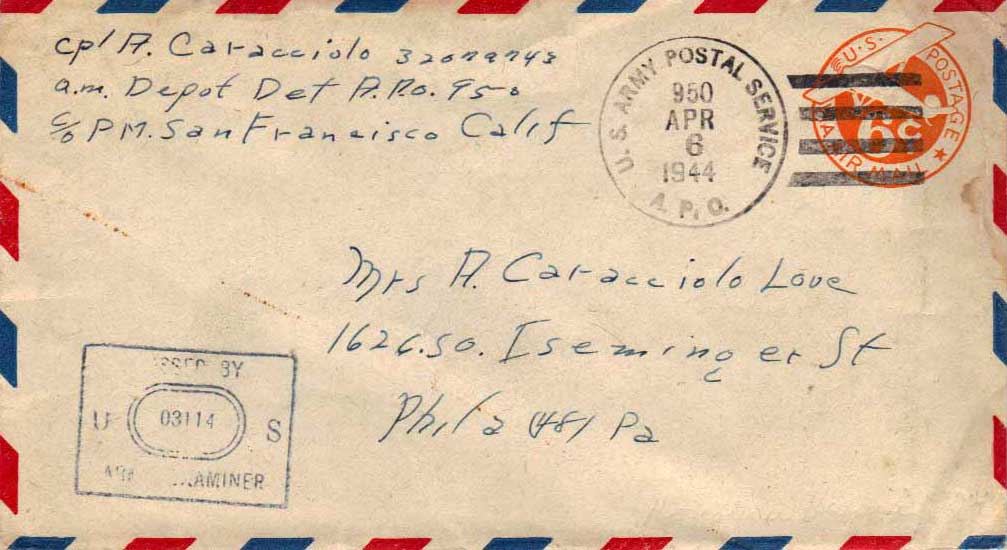 cpl A. Caracciolo
a.m. Depot Det A.P.O. 950
c/o P.M. San Francisco Calif
U.S. ARMY POSTAL SERVICE
950
APR
6
1944
A.P.O.
U.S. POSTAGE
6c
AIR MAIL
Mrs A. Caracciolo Love
1626 So. Iseminger St
Phila (48) Pa
BY
U 03114 S